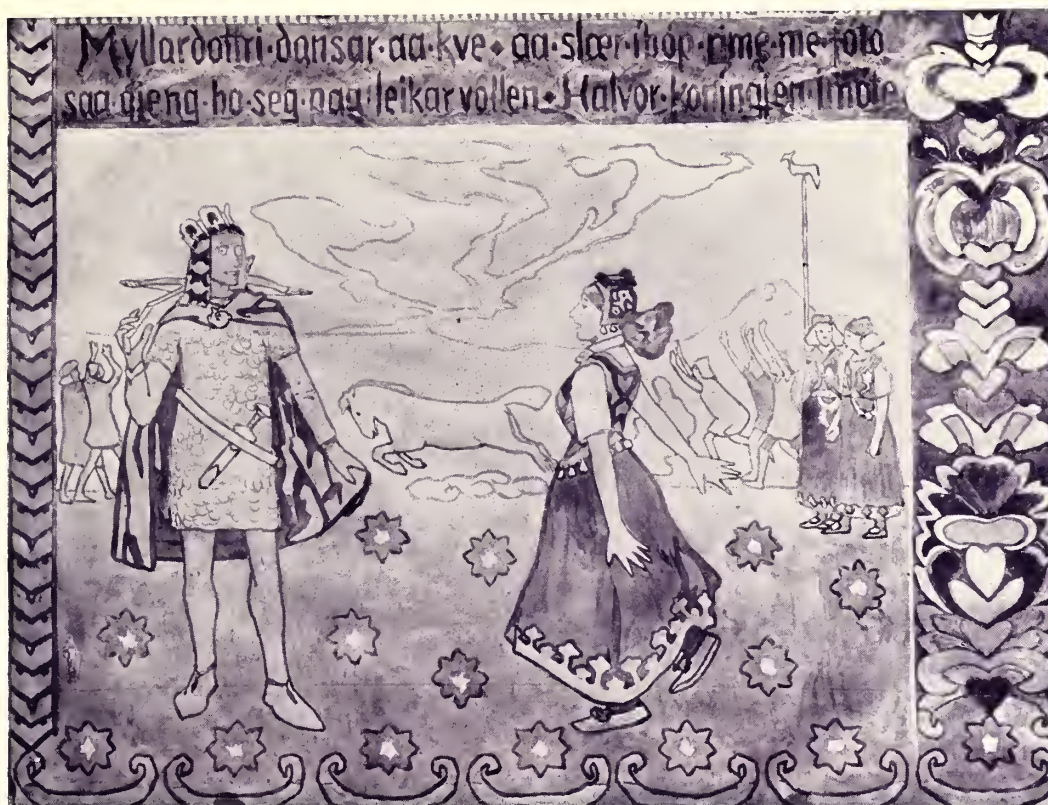 Myllardottri·dansar·aa·kve·aa·slær·ihop·ringe·me·foto
saa·gjeng·ho·seg·paa·leikarvollen·Halvor·koningjen·imote